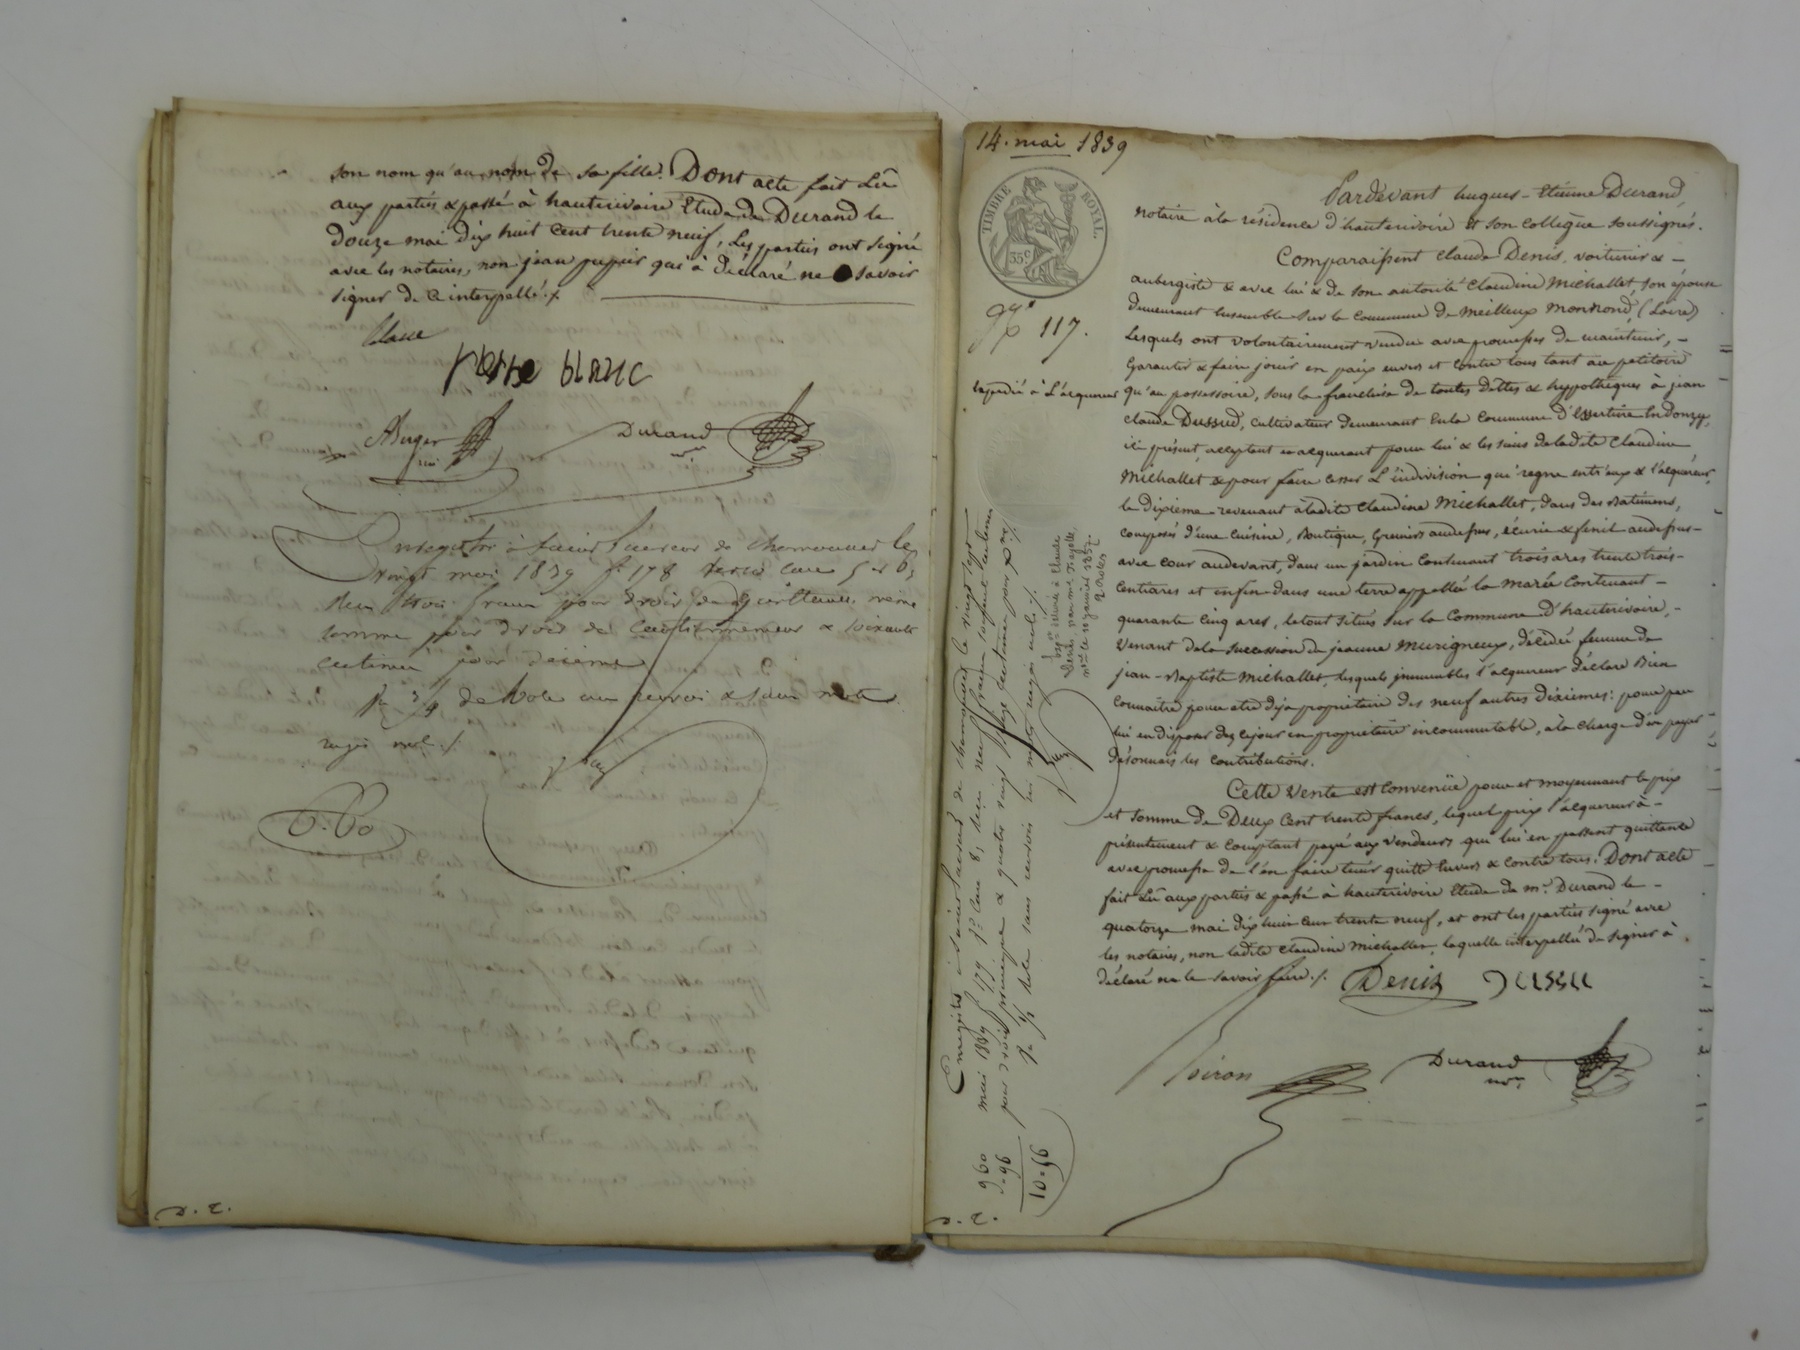 son nom qu'au nom de sa fille. Dont acte fait Lû
aux parties & passé à hauterivoire Etude de Durand le
douze mai dix huit cent trente neuf, Les parties ont signé
avec les notaires, non jean pupier qui à déclaré ne savoir
signer de ce interpellé ./.
blanc
pierre blanc
Durand
Enregistré à Saint Laurent de Chamousset le
vingt mai 1839 f° 178 verso case 5 et 6,
Reçu trois francs pour droit de quittance même
somme pour droit de cautionnement & soixante
centimes pour décime
renvoi & sans mots
rayés nul ./.
6.60
14. mai 1839
TIMBRE ROYAL.
35 c
117.
Pardevant hugues-Etienne Durand,
notaire à la résidence d'hauterivoire et son collègue soussignés.
Comparaissent Claude Denis, voiturier & -
aubergiste & avec lui & de son autorité Claudine Michallet, son épouse
demeurant ensemble sur la Commune de Meilleux Montrond, (Loire)
Lesquels ont volontairement vendu avec promesses de maintenir, -
Garantir & faire jouir en paix envers et contre tous tant au petitoire
qu'au possessoire, sous la franchise de toutes dettes & hypothèques à jean
Claude Dussud, Cultivateur demeurant en la Commune d'Essertine en donzy,
ici présent, acceptant et acquerant pour lui & les siens de ladite Claudine
Michallet & pour faire cesser L'indivision qui règne entr'eux & l'acquéreur,
le Dixième revenant à ladite Claudine Michallet, dans des Batimens,
composés d'une cuisine, Boutique, Greniers audessus, écurie & fenil audessus -
avec cour audevant, dans un jardin contenant trois ares trente trois -
centiares et enfin dans une terre appellée la Marée Contenant -
quarante cinq ares, le tout situés sur la Commune d'hauterivoire, -
venant de la succession de jeanne Murigneux, décédée femme de
jean-Baptiste Michallet, lesquels immeubles l'acquereur déclare Bien
connaître pour etre déja propriétaire des neuf autres dixièmes: pour par
lui en disposer dez cejour en propriétaire incommutable, à la charge d'en payer -
désormais les contributions.
Cette Vente est convenüe pour et moyennant le prix
et somme de Deux Cent trente francs, lequel prix l'acquereur à -
présentement & comptant payé aux vendeurs qui lui en passent quittance
avec promesse de l'en faire tenir quitte Envers & contre tous: Dont acte
fait Lû aux parties & passé à hauterivoire Etude de me. Durand le -
quatorze mai dix huit cent trente neuf, et ont les parties signé avec
les notaires, non ladite Claudine Michallet, laquelle interpellée de signer à
déclaré ne le savoir faire ./. Denis Dussu
Durand
Enregistré à Saint Laurent de Chamousset le vingt sept
mai 1839 f° 179 r° case 8, reçu neuf francs soixante centimes
pour droit principal & quatre vingt seize centimes pour dixme
sans renvois ni mots rayés nuls ./.
9 60
". 96
10.56